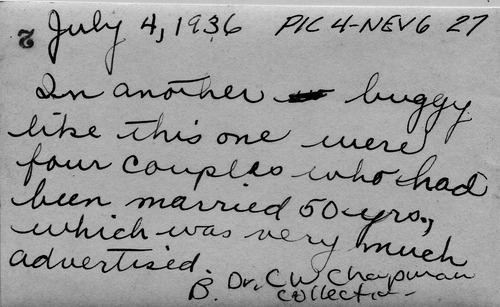 2 July 4, 1936 PIC 4-NEV6 27
In another buggy
like this one were
four couples who had
been married 50 yrs.,
which was very much
advertised.
B. Dr. C W Chapman
Collection